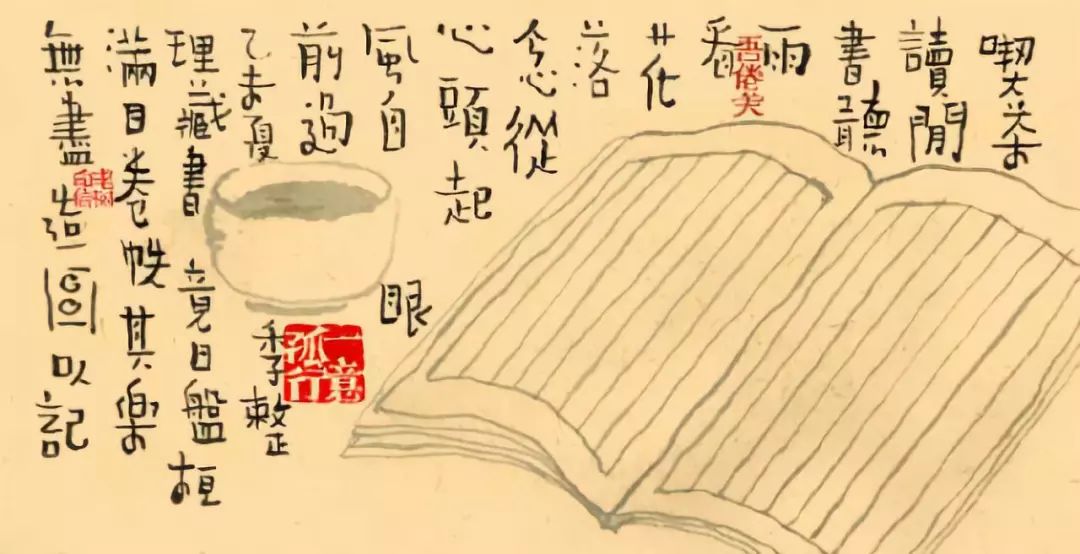 喫茶
讀閒
書聽
雨
看
花
落
念從
心頭起
風自眼
前過
乙未夏季整
理藏書竟日盤桓
滿目卷帙其樂
無盡造圖以記
一意孤行